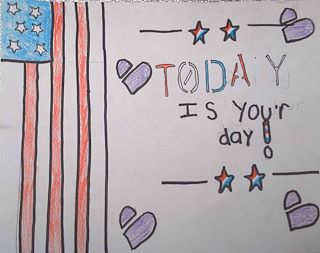 TODAY
IS your
day!